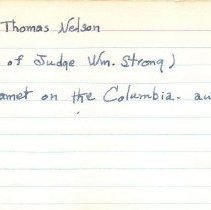 Thomas Nelson
of Judge Wm. Strong)
amet on the Columbia. au